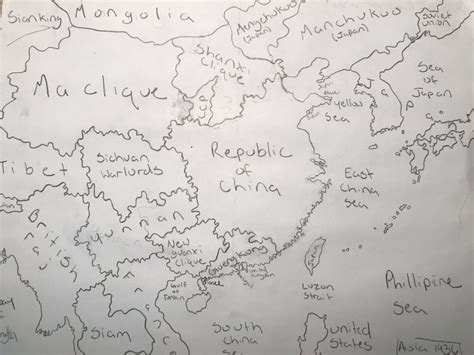 Mongolia
Sianking
Manchukuo
(Japan)
(Japan)
Soviet
Union
Shanxi
Clique
Ma Clique
Sea
of
Japan
Yellow
Sea
Republic
of
China
Tibet
Sichuan
Warlords
East
China
Sea
Yunnan
New
Guanxi
Clique
United
Kingdom
Gulf
of
France
Luzan
Strait
Phillipine
Sea
Siam
South
China
United
States
Asia 1936